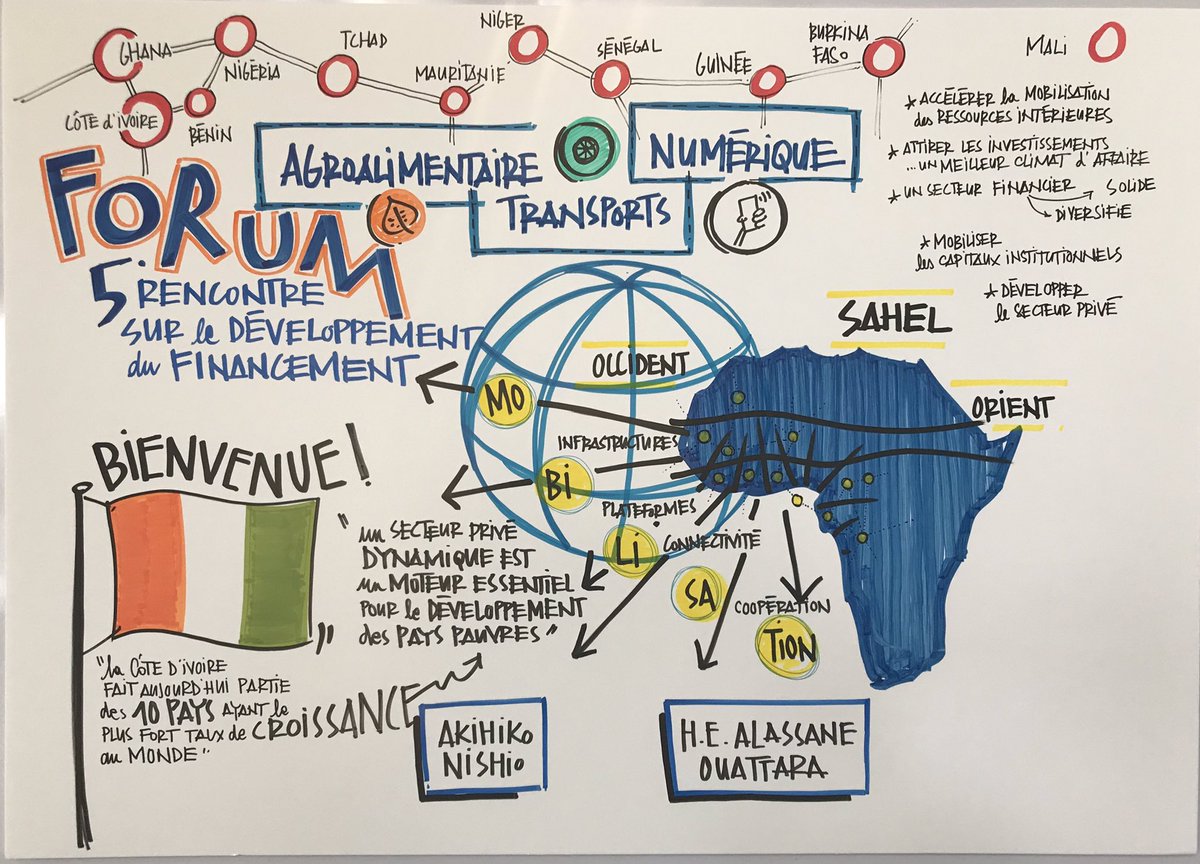 GHANA
NIGÉRIA
TCHAD
MAURITANIE
NIGER
SÉNÉGAL
GUINÉE
BURKINA
FASO
MALI
CÔTE D'IVOIRE
BÉNIN
AGROALIMENTAIRE
NUMÉRIQUE
TRANSPORTS
FORUM
5e RENCONTRE
SUR le DÉVELOPPEMENT
du FINANCEMENT
* ACCÉLÉRER la MOBILISATION
des RESSOURCES INTÉRIEURES
* ATTIRER LES INVESTISSEMENTS
...UN MEILLEUR CLIMAT D'AFFAIRE
* UN SECTEUR FINANCIER → SOLIDE
→ DIVERSIFIÉ
* MOBILISER
les CAPITAUX INSTITUTIONNELS
* DÉVELOPPER
le SECTEUR PRIVÉ
SAHEL
OCCIDENT
ORIENT
MO
INFRASTRUCTURES
BI
PLATEFORMES
LI
CONNECTIVITÉ
SA
COOPÉRATION
TION
BIENVENUE!
"UN SECTEUR PRIVÉ
DYNAMIQUE EST
UN MOTEUR ESSENTIEL
POUR le DÉVELOPPEMENT
des PAYS PAUVRES"
"la CÔTE D'IVOIRE
FAIT AUJOURD'HUI PARTIE
des 10 PAYS AYANT le
PLUS FORT TAUX de CROISSANCE
au MONDE"
AKIHIKO
NISHIO
H.E. ALASSANE
OUATTARA